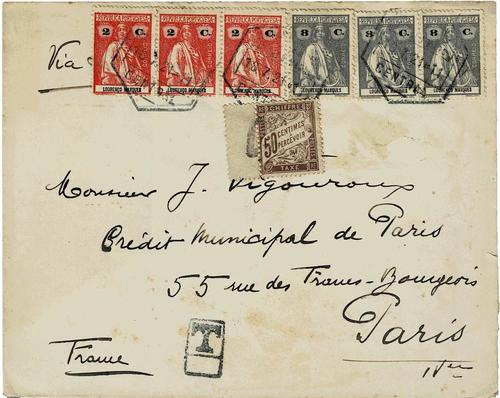 REPUBLICA PORTUGUESA REPUBLICA PORTUGUESA REPUBLICA PORTUGUESA REPUBLICA PORTUGUESA REPUBLICA PORTUGUESA REPUBLICA PORTUGUESA
2 C. 2 C. 2 C. 8 C. 8 C. 8 C.
CORREIO CORREIO CORREIO CORREIO CORREIO CORREIO
LOURENÇO MARQUES LOURENÇO MARQUES LOURENÇO MARQUES LOURENÇO MARQUES LOURENÇO MARQUES LOURENÇO MARQUES
CENTRAL
Via
CHIFFRE
50 CENTIMES À PERCEVOIR
TAXE
Monsieur J. Vigouroux
Crédit Municipal de Paris
55 rue des Francs-Bourgeois
Paris
France
T